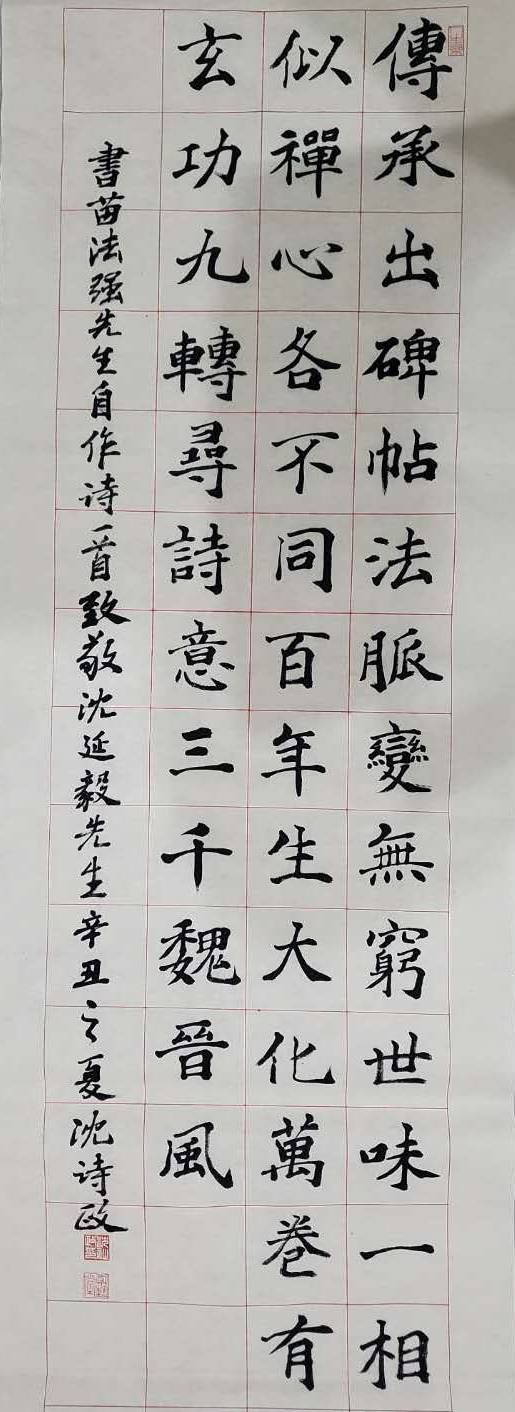 傳承出碑帖法脈變無窮世味一相
似禪心各不同百年生大化萬卷有
玄功九轉尋詩意三千魏晉風
書苗法强先生自作诗一首致敬沈延毅先生辛丑之夏沈诗政